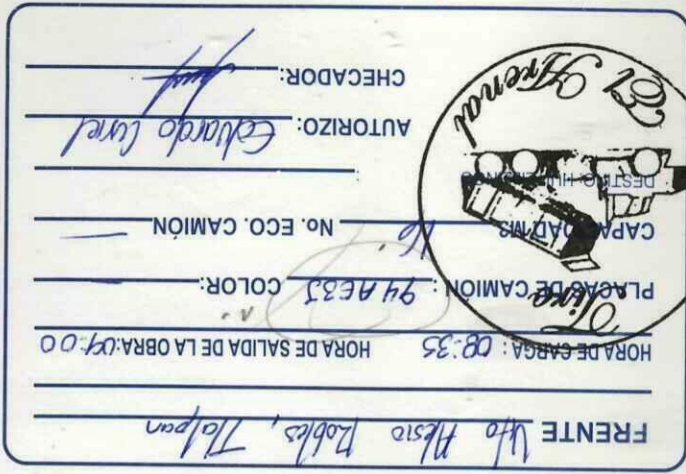 FRENTE Vito Alessio Robles, Tlalpan
HORA DE CARGA: 08:35 HORA DE SALIDA DE LA OBRA: 09:00
PLACAS DE CAMIÓN: 94AE3J COLOR: —
CAPACIDAD M3 16 No. ECO. CAMIÓN —
DESTINO
AUTORIZO: Eduardo
CHECADOR:
Tiro
El Arenal